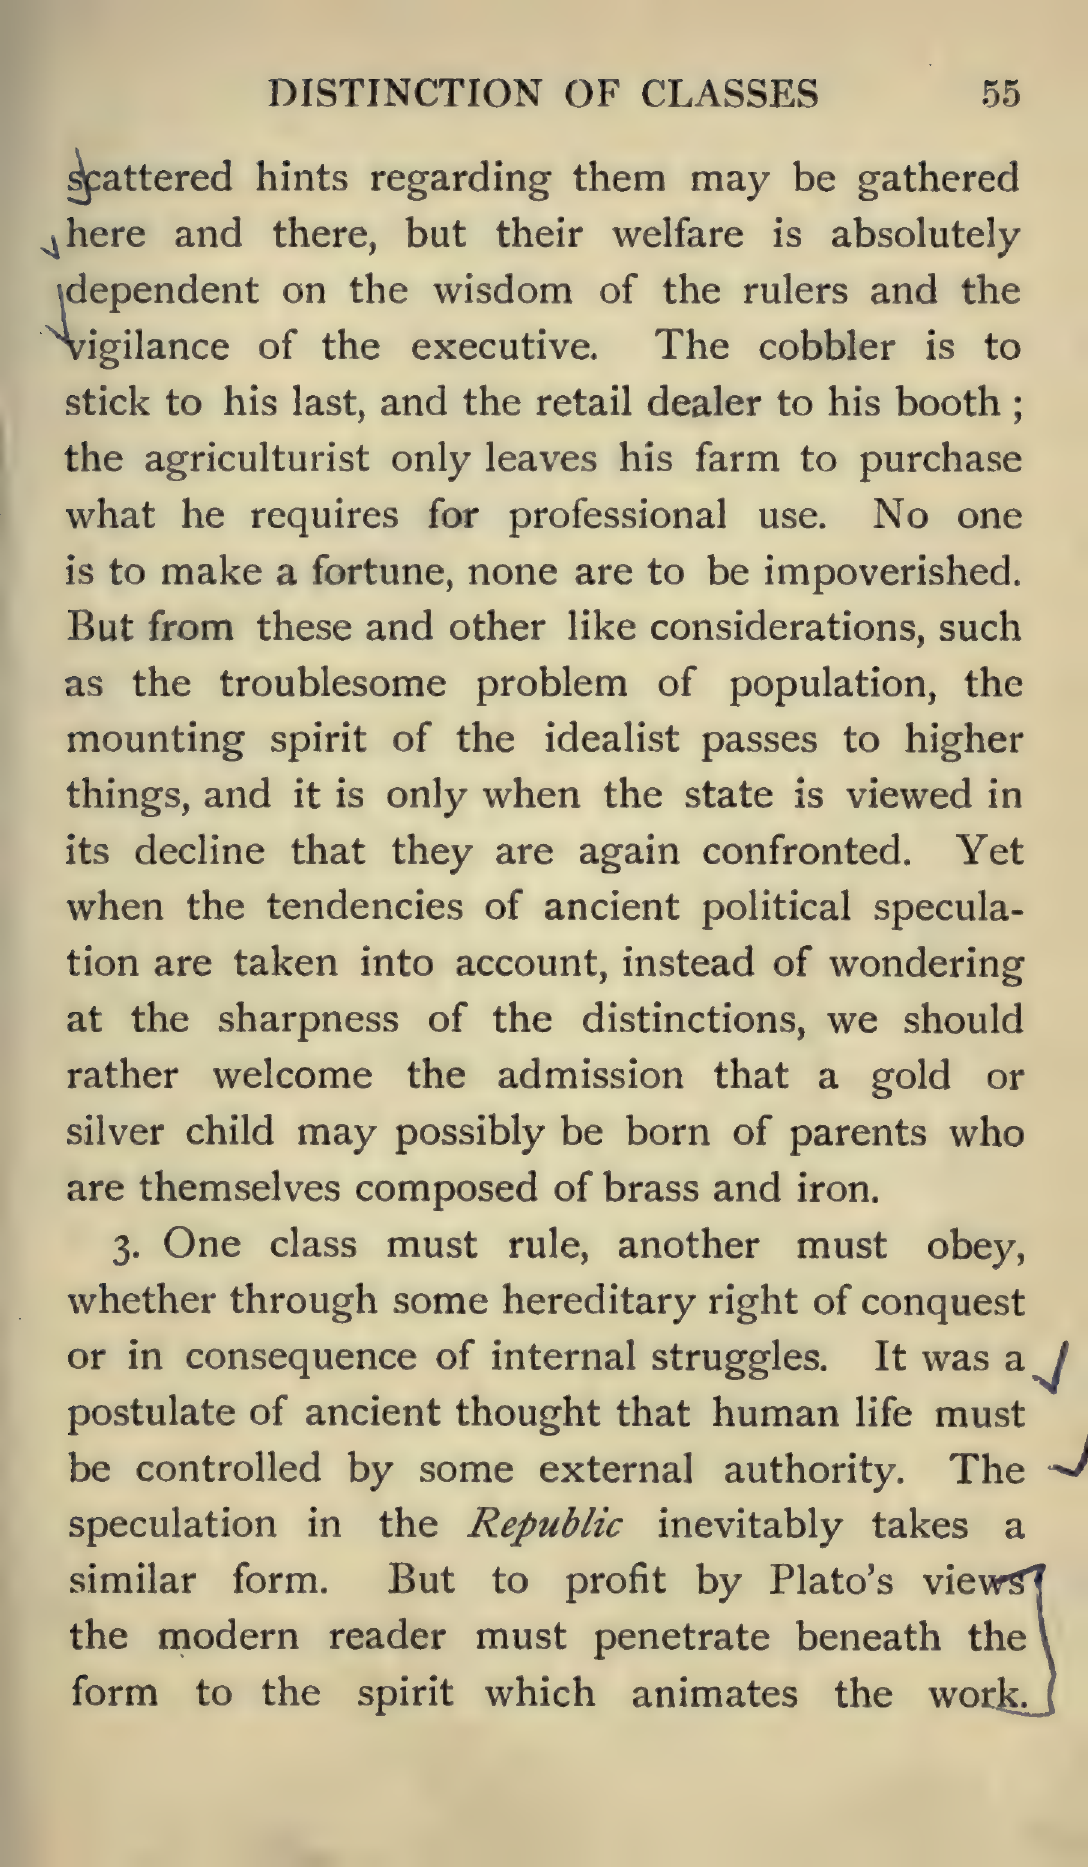 DISTINCTION OF CLASSES 55
scattered hints regarding them may be gathered
here and there, but their welfare is absolutely
dependent on the wisdom of the rulers and the
vigilance of the executive. The cobbler is to
stick to his last, and the retail dealer to his booth ;
the agriculturist only leaves his farm to purchase
what he requires for professional use. No one
is to make a fortune, none are to be impoverished.
But from these and other like considerations, such
as the troublesome problem of population, the
mounting spirit of the idealist passes to higher
things, and it is only when the state is viewed in
its decline that they are again confronted. Yet
when the tendencies of ancient political specula-
tion are taken into account, instead of wondering
at the sharpness of the distinctions, we should
rather welcome the admission that a gold or
silver child may possibly be born of parents who
are themselves composed of brass and iron.
3. One class must rule, another must obey,
whether through some hereditary right of conquest
or in consequence of internal struggles. It was a
postulate of ancient thought that human life must
be controlled by some external authority. The
speculation in the Republic inevitably takes a
similar form. But to profit by Plato's views
the modern reader must penetrate beneath the
form to the spirit which animates the work.